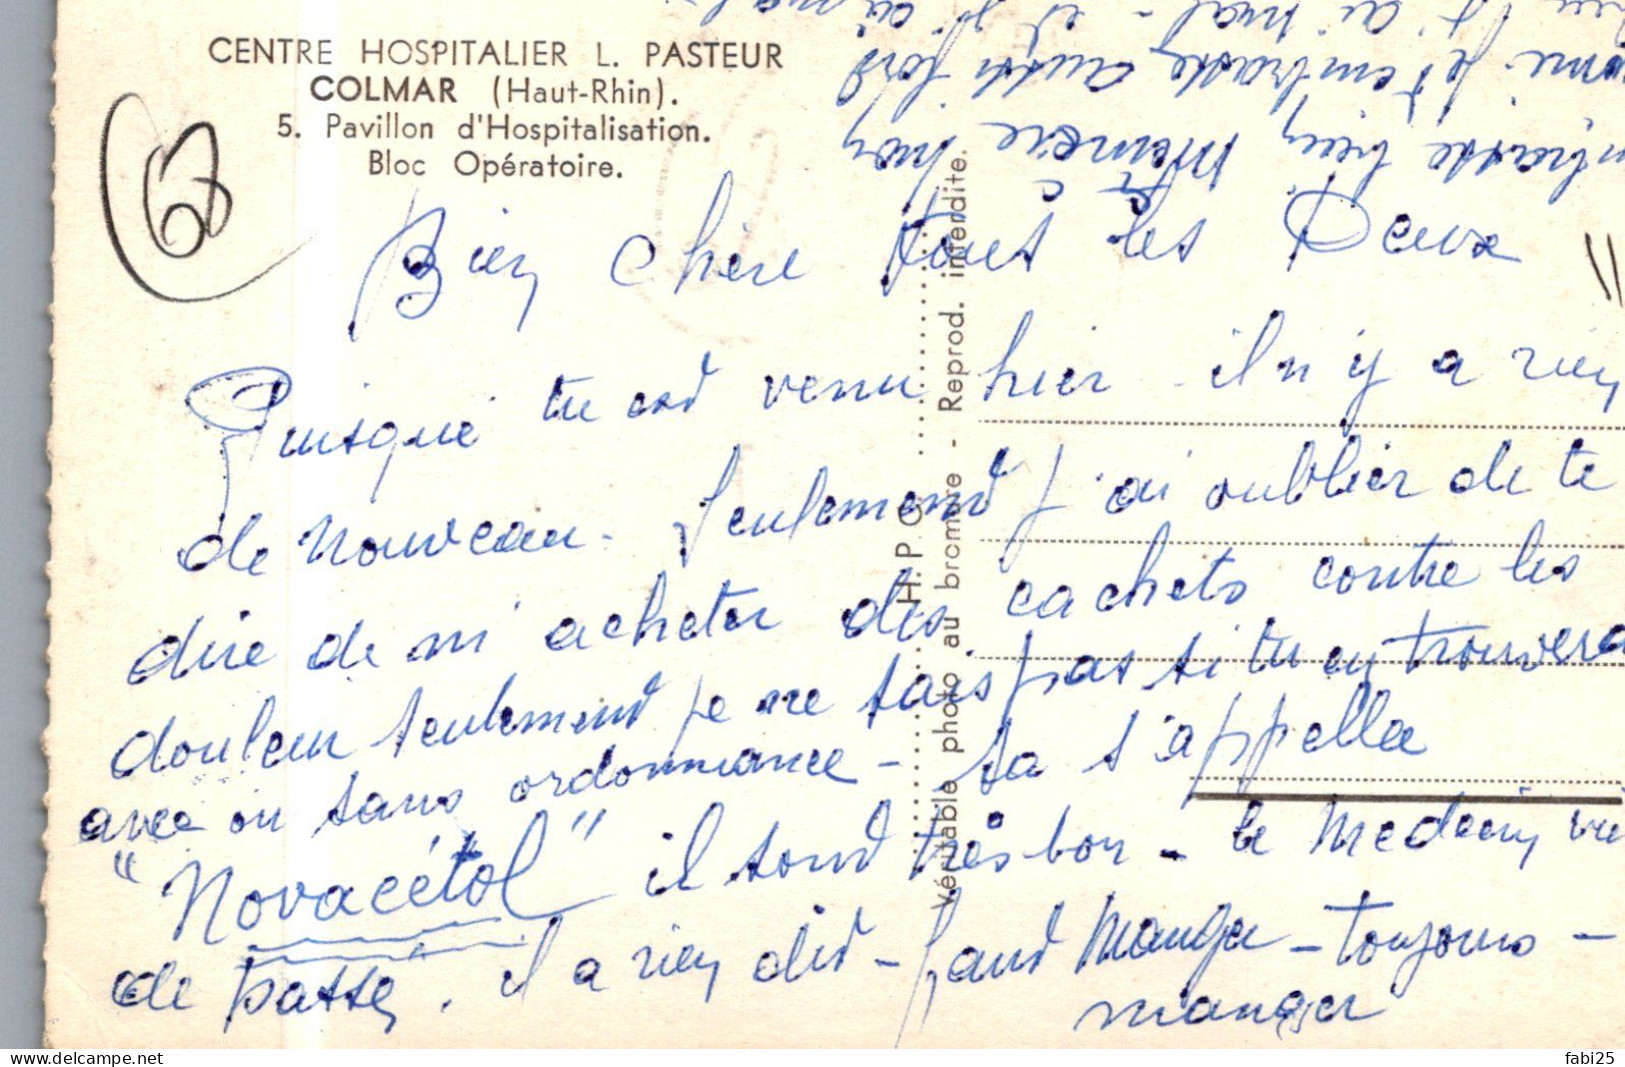 CENTRE HOSPITALIER L. PASTEUR
COLMAR (Haut-Rhin).
5. Pavillon d'Hospitalisation.
Bloc Opératoire.
68
Bien chère tous les Deux
Puisque tu est venu hier il n y a rien
de nouveau. Seulement j'ai oublier de te
dire de m'acheter des cachets contre les
douleur seulement je ne sais pas si tu en trouvera
avec ou sans ordonnance - sa s'appelle
"Novacétol" il sont très bon - le Medecin vi
de passé. il a rien dit - faut Manger - toujours -
manger
H. P. G.
Véritable photo au bromure - Reprod. interdite.
j'ai mal - et j'ai
je t'embrasse aussi fort
bien Memère mon
www.delcampe.net
fabi25